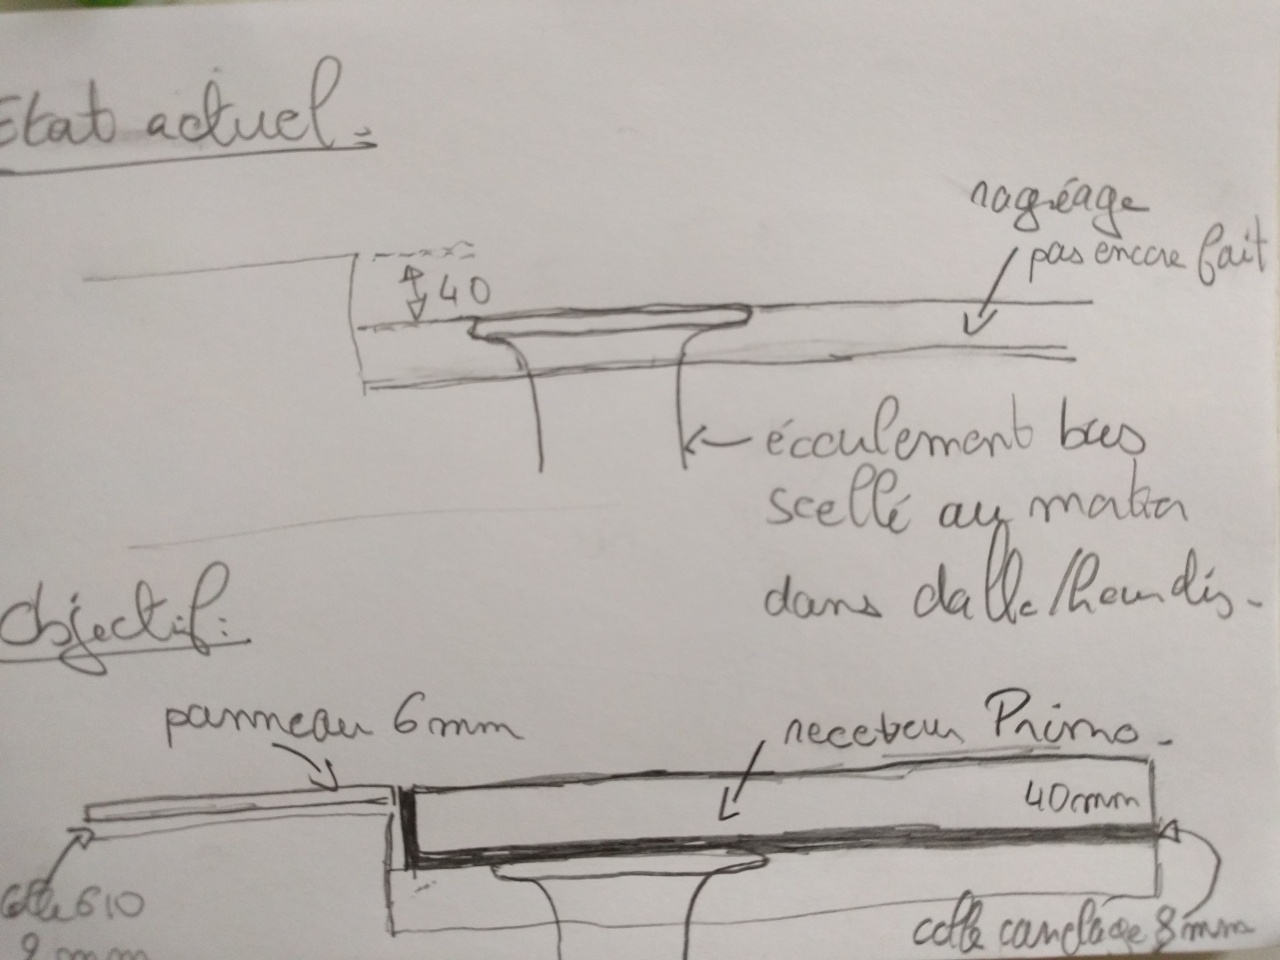 Etat actuel:
ragréage
pas encore fait
40
écoulement bas
scellé au mortier
dans dalle/hourdis.
Objectif:
panneau 6mm
receveur Primo.
40mm
colle 610
colle carrelage 8mm